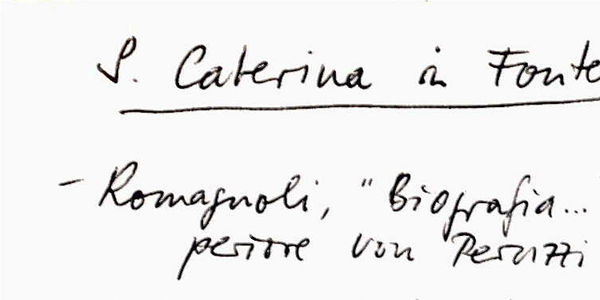 S. Caterina in Fonte
- Romagnoli, "Biografia..."
periore von Peruzzi